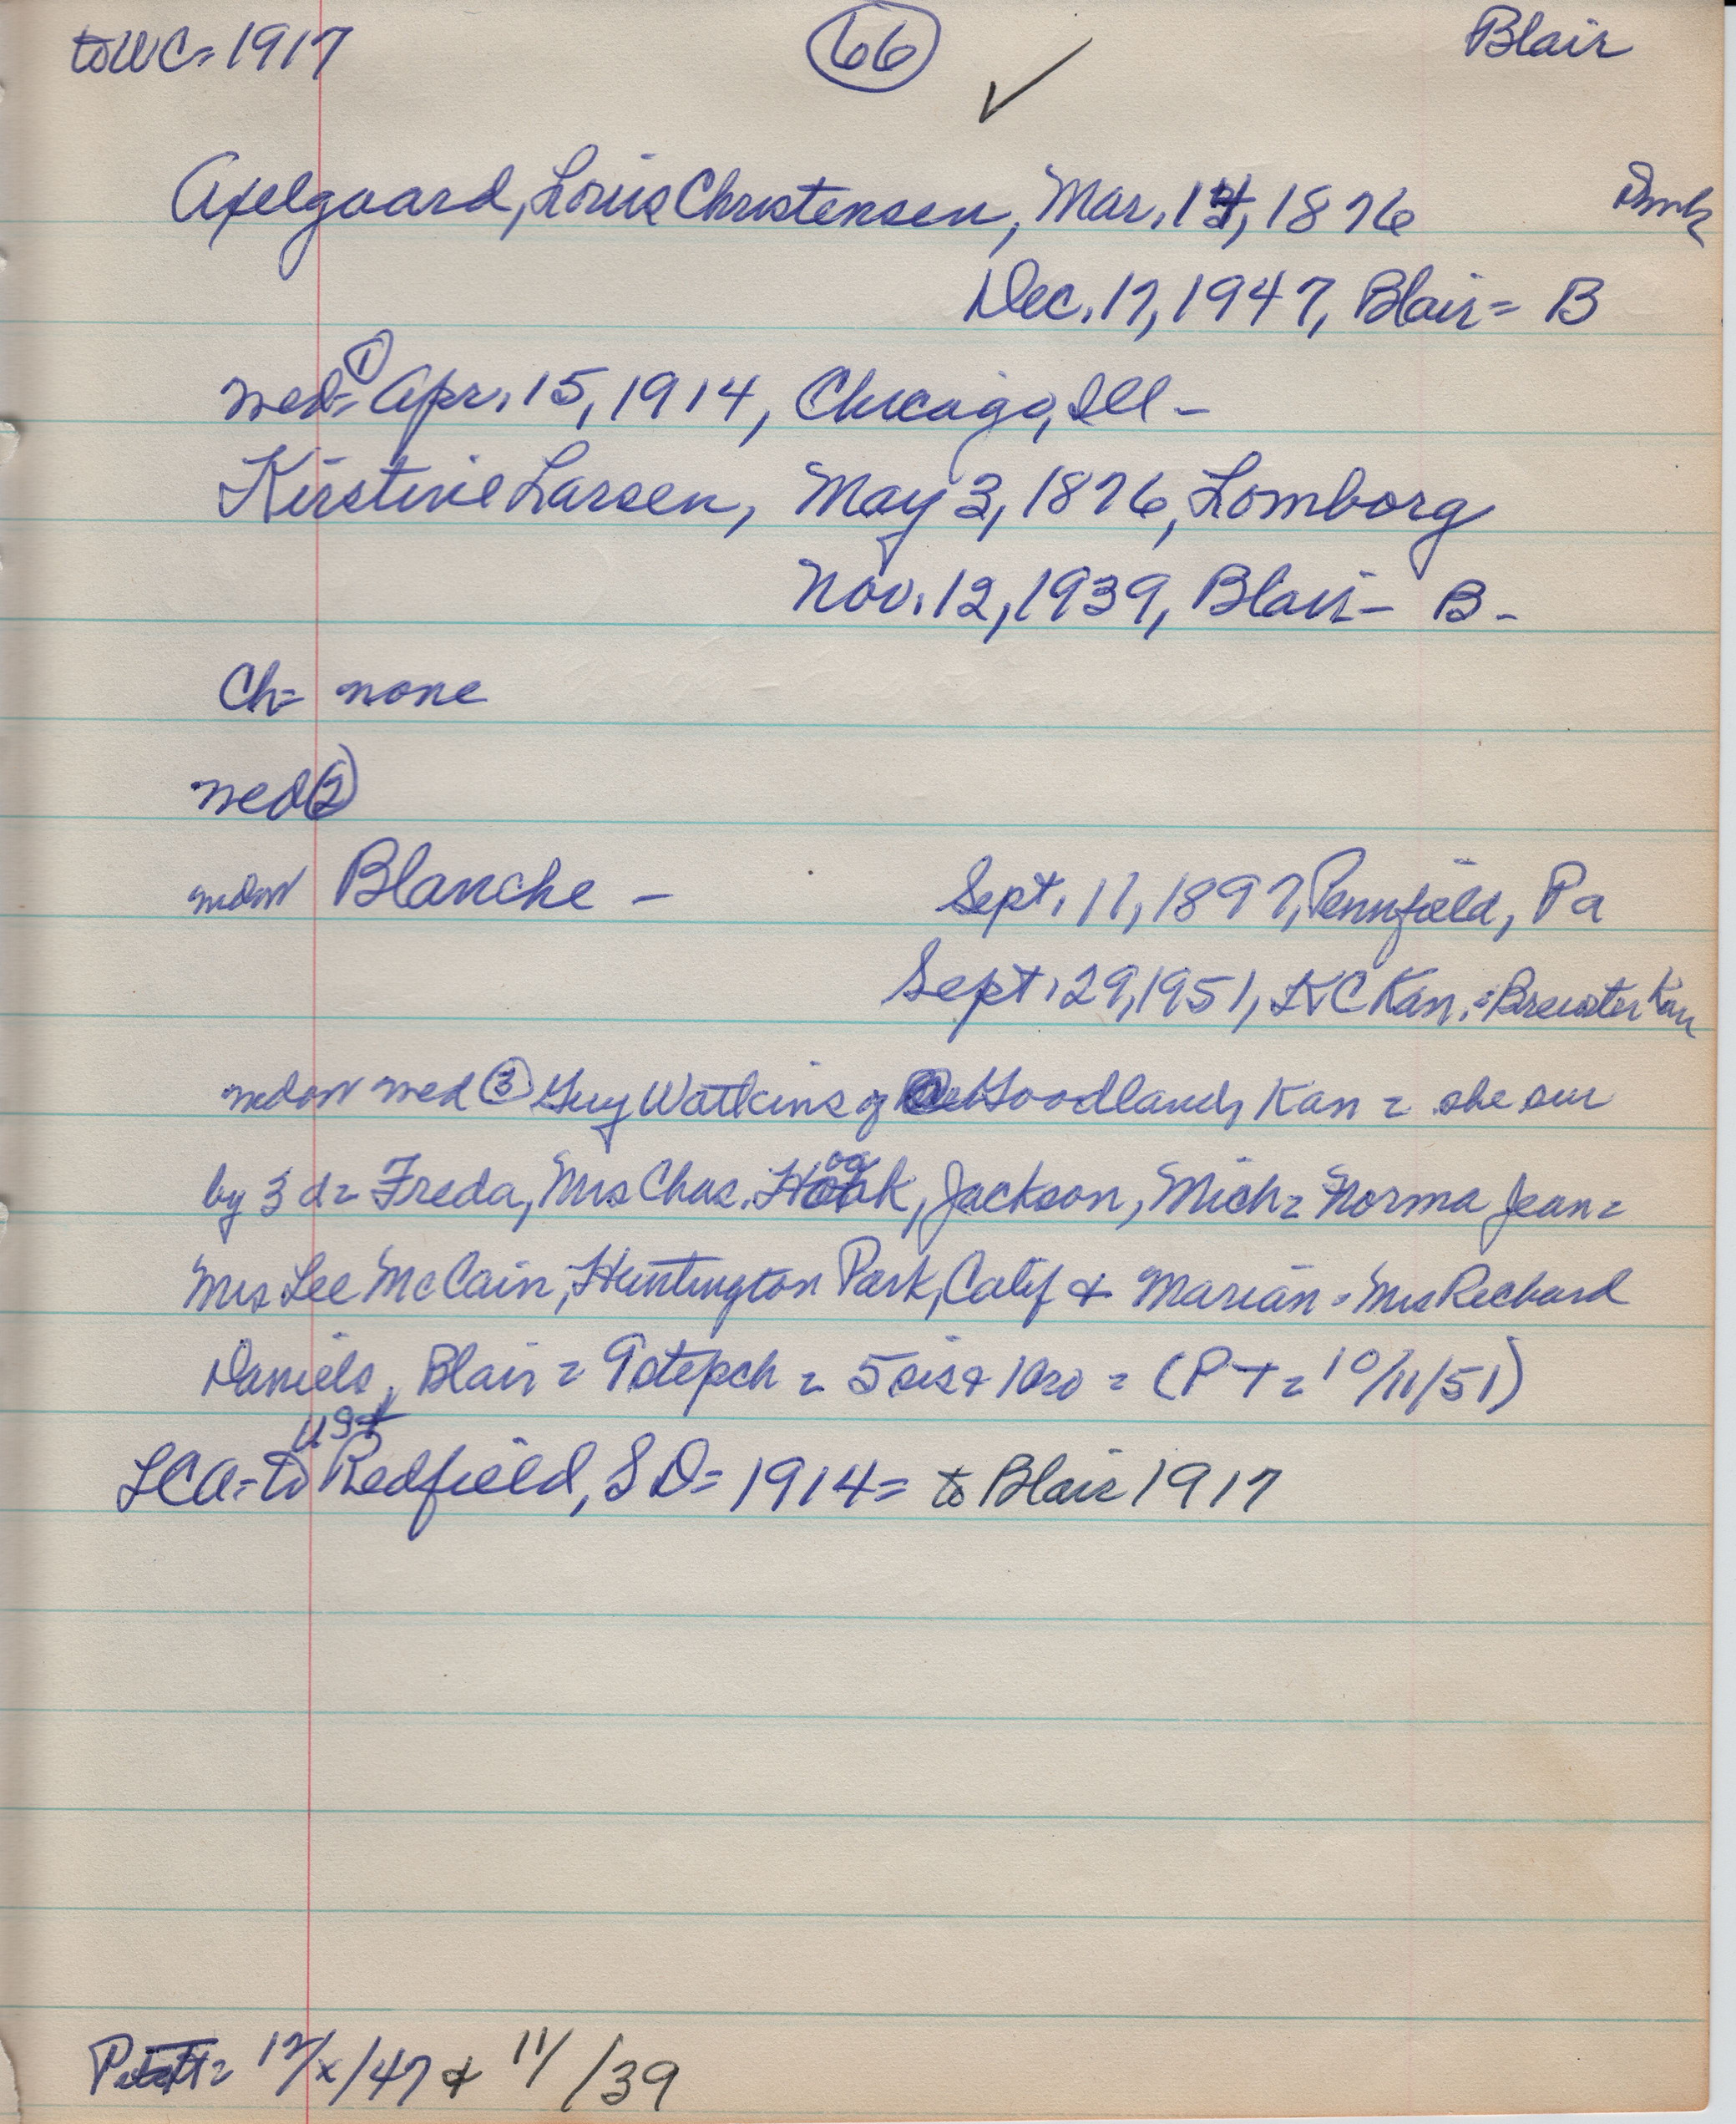 to WC= 1917 66 Blair
Axelgaard, Louis Christensen, Mar. 14, 1876 Dmk
Dec. 17, 1947, Blair= B
wed= ① Apr. 15, 1914, Chicago, Ill -
Kirstine Larsen, May 3, 1876, Lomborg
Nov. 12, 1939, Blair- B -
Ch= none
wed ②
Blanche - Sept. 11, 1897, Pennfield, Pa
Sept. 29, 1951, KC Kan. = Brewster Kan
wed ③ Guy Watkins of Goodland, Kan = she sur
by 3 d= Freda, Mrs Chas. Hoak, Jackson, Mich= Norma Jean=
Mrs Lee McCain, Huntington Park, Calif & Marian = Mrs Richard
Daniels, Blair = 9 stepch = 5 sis & 1 bro = (PT= 10/11/51)
LCA= to USA Redfield, SD= 1914= to Blair 1917
12/x/47 & 11/ /39